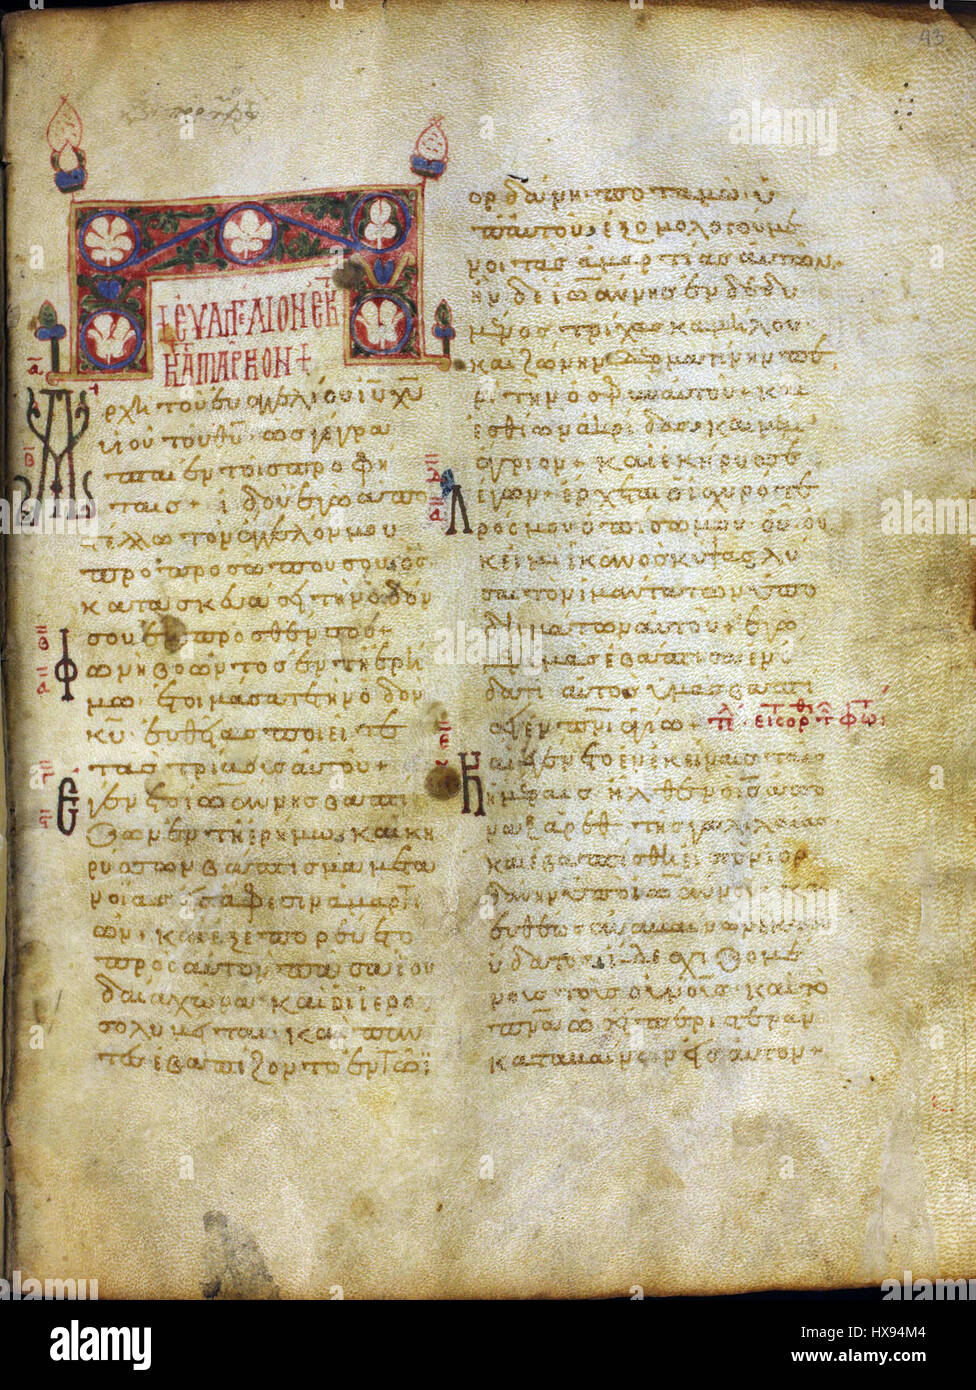 43
+ΕΥΑΓΓΕΛΙΟΝ ΕΚ
ΚΑΤΑ ΜΑΡΚΟΝ+
Αρχὴ τοῦ εὐαγγελίου ιυ χυ
υιοῦ τοῦ θυ· ὡς γέγρα
πται ἐν τοῖς προφή
ταις+ ἰδοὺ ἐγὼ ἀπο
στέλλω τὸν ἄγγελόν μου
πρὸ προσώπου σου ὃς
κατασκευάσει τὴν ὁδόν
σου ἔμπροσθέν σου+
Φωνὴ βοῶντος ἐν τῇ ἐρή
μω ἑτοιμάσατε τὴν ὁδὸν
κυ εὐθείας ποιεῖτε
τὰς τρίβους αὐτοῦ+
Ἐγένετο ἰωάννης βαπτί
ζων ἐν τῇ ἐρήμω καὶ κη
ρύσσων βάπτισμα μετα
νοίας εἰς ἄφεσιν ἁμαρτι
ῶν· καὶ ἐξεπορεύετο
πρὸς αὐτὸν πᾶσα ἡ ἰου
δαία χώρα· καὶ οἱ ἱερο
σολυμῖται· καὶ
ἐβαπτίζοντο ἐν τῷ ἰ
ορδάνη ποταμῶ ὑ
π αὐτοῦ ἐξομολογούμε
νοι τὰς ἁμαρτίας αὐτῶν·
ἦν δὲ ἰωάννης ἐνδεδυ
μένος τρίχας καμήλου·
καὶ ζώνην δερματίνην
περὶ τὴν ὀσφὺν αὐτοῦ· καὶ
ἐσθίων ἀκρίδας καὶ μέλι
ἄγριον+ καὶ ἐκήρυσσε
λέγων+ ἔρχεται ὁ ἰσχυρότε
ρός μου ὀπίσω μου· οὗ οὐ
κ εἰμὶ ἱκανὸς κύψας λύ
σαι τὸν ἱμάντα τῶν ὑπο
δημάτων αὐτοῦ+ ἐγὼ
μὲν ὑμᾶς ἐβάπτισα ἐν ὕ
δατι αὐτὸς ὑμᾶς βαπτί
σει ἐν πνι ἁγίω+
Καὶ ἐγένετο ἐν ἐκείναις ταῖς
ἡμέραις ἦλθεν ὁ ις ἀπὸ
ναζαρὲθ τῆς γαλιλαίας
καὶ ἐβαπτίσθη εἰς τὸν ἰορ
δάνην ὑπὸ ἰωάννου· καὶ
εὐθέως ἀναβαίνων ἐκ τοῦ
ὕδατος εἶδε σχιζομέ
νους τοὺς οὐνους· καὶ τὸ
πνα ὡσεὶ περιστερὰν
καταβαῖνον ἐπ αὐτόν+
alamy stock photo
HX94M4
www.alamy.com